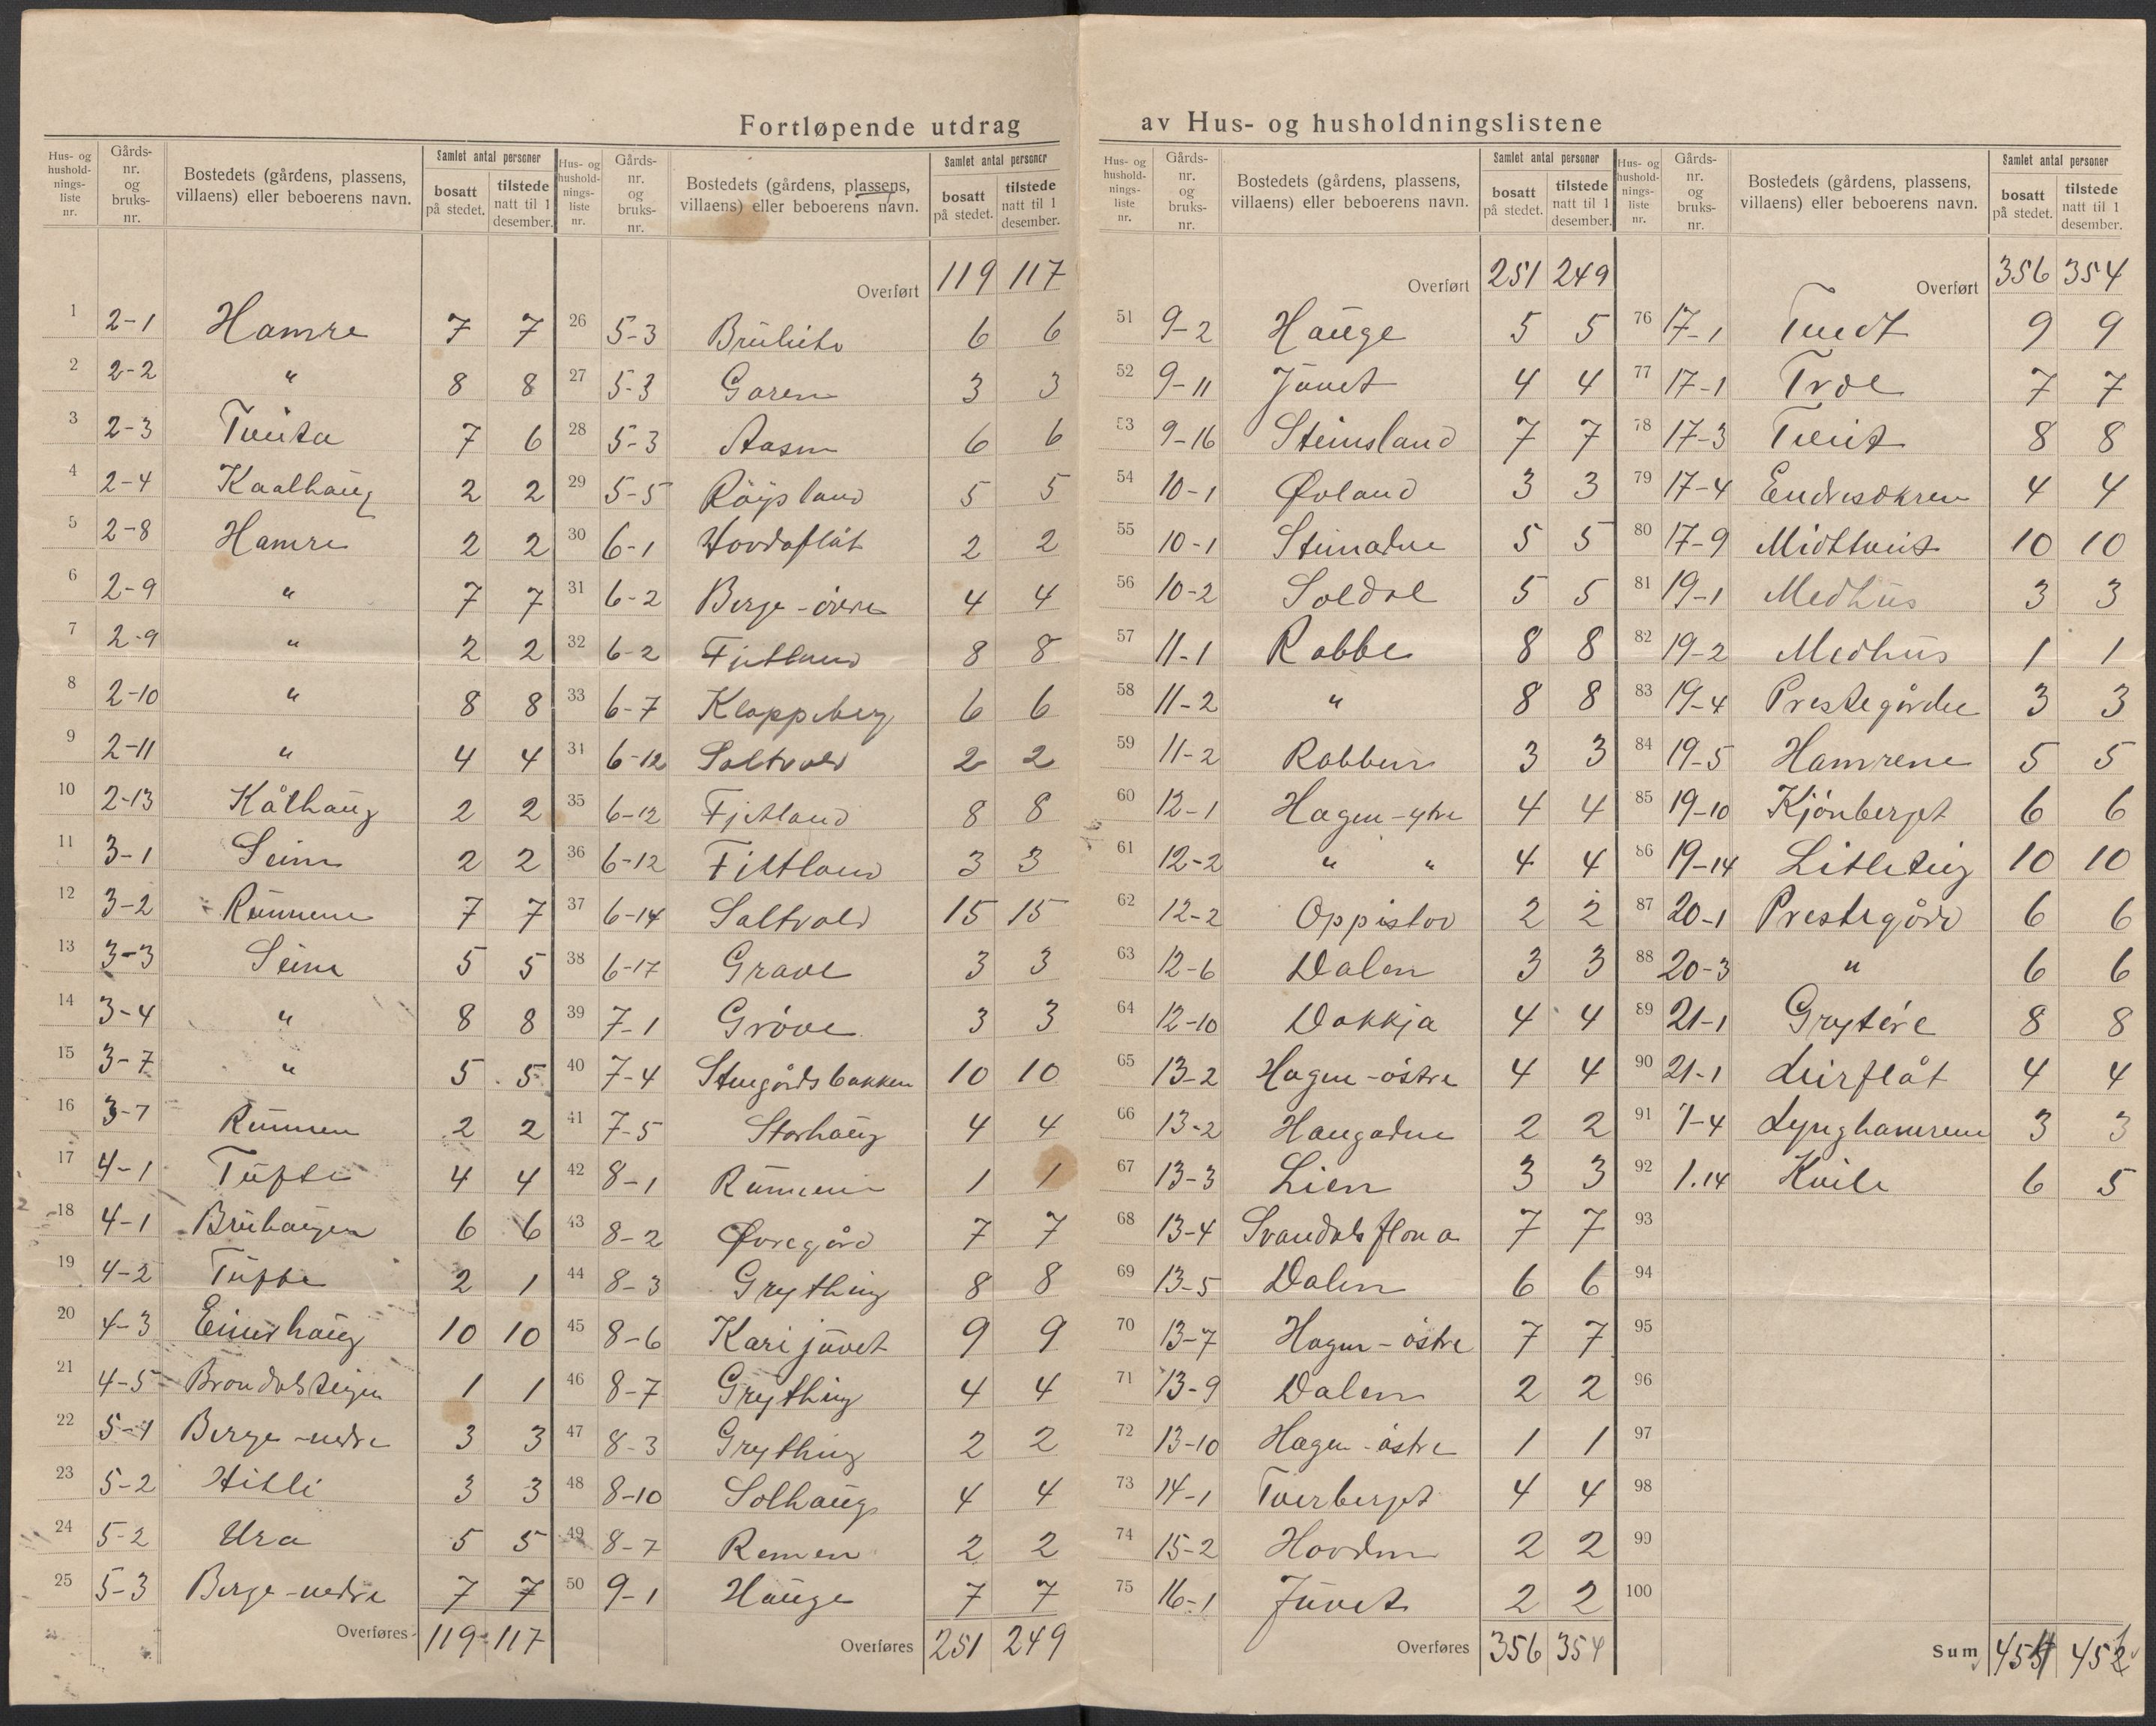 Fortløpende utdrag av Hus- og husholdningslistene
Hus- og hushold- nings- liste nr. | Gårds- nr. og bruks- nr. | Bostedets (gårdens, plassens, villaens) eller beboerens navn. | Samlet antal personer | bosatt på stedet. | tilstede natt til 1 desember.
1 2-1 Hamre 7 7
2 2-2 " 8 8
3 2-3 Tveita 7 6
4 2-4 Kaalhaug 2 2
5 2-8 Hamre 2 2
6 2-9 " 7 7
7 2-9 " 2 2
8 2-10 " 8 8
9 2-11 " 4 4
10 2-13 Kålhaug 2 2
11 3-1 Seim 2 2
12 3-2 Rünnene 7 7
13 3-3 Seim 5 5
14 3-4 " 8 8
15 3-7 " 5 5
16 3-7 Rünnen 2 2
17 4-1 Tufte 4 4
18 4-1 Bruhaugen 6 6
19 4-2 Tufte 2 1
20 4-3 Einerhaug 10 10
21 4-5 Brondalsteigen 1 1
22 5-1 Berge-nedre 3 3
23 5-2 Hitli 3 3
24 5-2 Ura 5 5
25 5-3 Berge-nedre 7 7
Overføres 119 117
Hus- og hushold- nings- liste nr. | Gårds- nr. og bruks- nr. | Bostedets (gårdens, plassens, villaens) eller beboerens navn. | Samlet antal personer | bosatt på stedet. | tilstede natt til 1 desember.
Overført 119 117
26 5-3 6 6
27 5-3 Garen 3 3
28 5-3 Aasen 6 6
29 5-5 Röysland 5 5
30 6-1 Hovdaflåt 2 2
31 6-2 Berge-övre 4 4
32 6-2 Fjetland 8 8
33 6-7 Kloppeberg 6 6
34 6-12 Saltvold 2 2
35 6-12 Fjetland 8 8
36 6-12 Fjetland 3 3
37 6-14 Saltvold 15 15
38 6-17 Grave 3 3
39 7-1 Gröve 3 3
40 7-4 Stengårdsbakken 10 10
41 7-5 Storhaug 4 4
42 8-1 1 1
43 8-2 Øvregård 7 7
44 8-3 Grything 8 8
45 8-6 Karijuvet 9 9
46 8-7 Grything 4 4
47 8-3 Grything 2 2
48 8-10 Solhaug 4 4
49 8-7 Remen 2 2
50 9-1 Hauge 7 7
Overføres 251 249
Hus- og hushold- nings- liste nr. | Gårds- nr. og bruks- nr. | Bostedets (gårdens, plassens, villaens) eller beboerens navn. | Samlet antal personer | bosatt på stedet. | tilstede natt til 1 desember.
Overført 251 249
51 9-2 Hauge 5 5
52 9-11 Juvet 4 4
53 9-16 Steinsland 7 7
54 10-1 Øvland 3 3
55 10-1 5 5
56 10-2 Soldal 5 5
57 11-1 Rabbe 8 8
58 11-2 " 8 8
59 11-2 Rabben 3 3
60 12-1 Hagen-ytre 4 4
61 12-2 " " 4 4
62 12-2 Oppistov 2 2
63 12-6 Dalen 3 3
64 12-10 Dokkja 4 4
65 13-2 Hagen-östre 4 4
66 13-2 Haugadne 2 2
67 13-3 Lien 3 3
68 13-4 Svandalsflona 7 7
69 13-5 Dalen 6 6
70 13-7 Hagen-östre 7 7
71 13-9 Dalen 2 2
72 13-10 Hagen-östre 1 1
73 14-1 Tverberget 4 4
74 15-2 Hovden 2 2
75 16-1 Juvet 2 2
Overføres 356 354
Hus- og hushold- nings- liste nr. | Gårds- nr. og bruks- nr. | Bostedets (gårdens, plassens, villaens) eller beboerens navn. | Samlet antal personer | bosatt på stedet. | tilstede natt til 1 desember.
Overført 356 354
76 17-1 9 9
77 17-1 Troe 7 7
78 17-3 Tveit 8 8
79 17-4 Endresokren 4 4
80 17-9 Midttveit 10 10
81 19-1 Medhus 3 3
82 19-2 Medhus 1 1
83 19-4 Prestegårde 3 3
84 19-5 Hamrene 5 5
85 19-10 Kjönberget 6 6
86 19-14 Litleteig 10 10
87 20-1 Prestegård 6 6
88 20-3 " 6 6
89 21-1 Grytöre 8 8
90 21-1 Leirflåt 4 4
91 1-4 Lynghamrene 3 3
92 1.14 Kvile 6 5
93
94
95
96
97
98
99
100
Sum 455 452